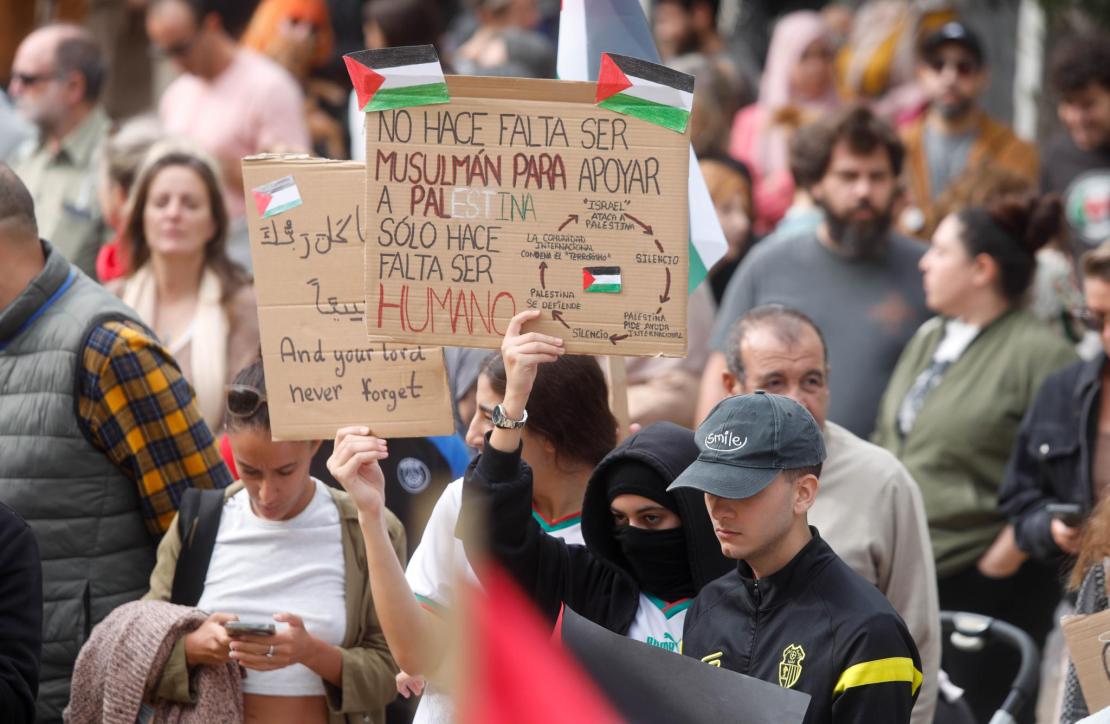 NO HACE FALTA SER
MUSULMÁN PARA APOYAR
A PALESTINA
SÓLO HACE
FALTA SER
HUMANO
"ISRAEL"
ATACA A
PALESTINA
SILENCIO
PALESTINA
PIDE AYUDA
INTERNACIONAL
SILENCIO
PALESTINA
SE DEFIENDE
LA COMUNIDAD
INTERNACIONAL
CONDENA EL "TERRORISMO"
And your lord
never forget
smile